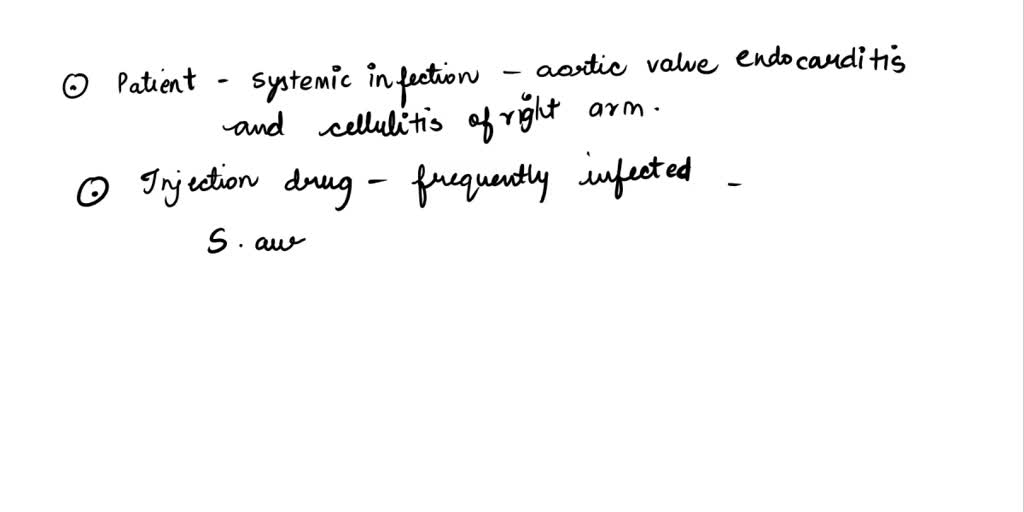 ⊙ Patient - systemic infection - aortic valve endocarditis
and cellulitis of right arm.
⊙ Injection drug - frequently infected -
S. aur